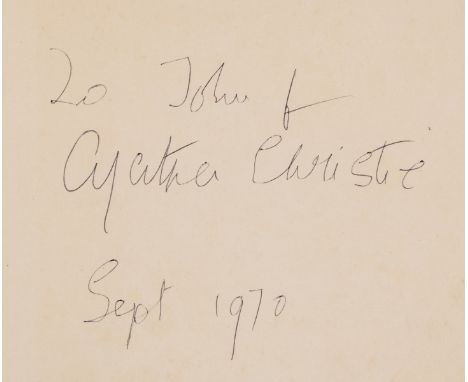 To John f
Agatha Christie
Sept 1970